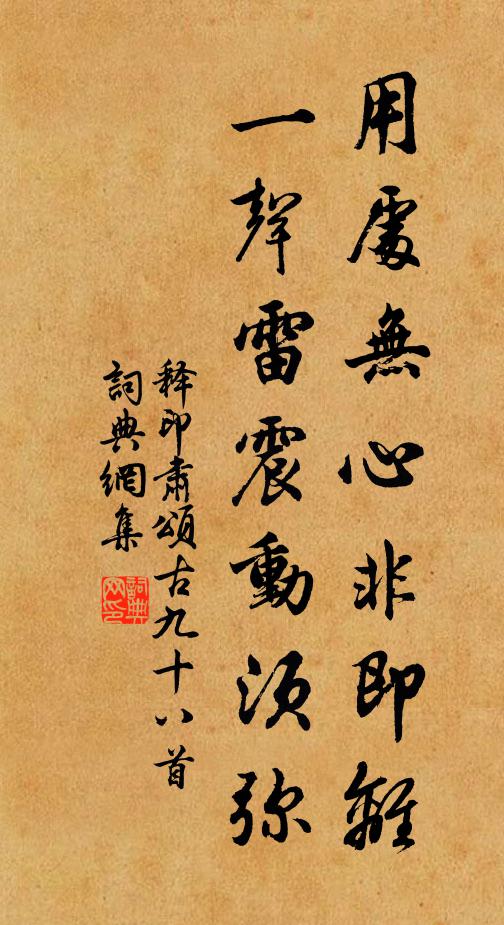 用處無心非即離
一聲雷震動須弥
释印肅頌古九十八首
詞典網集
詞典網印